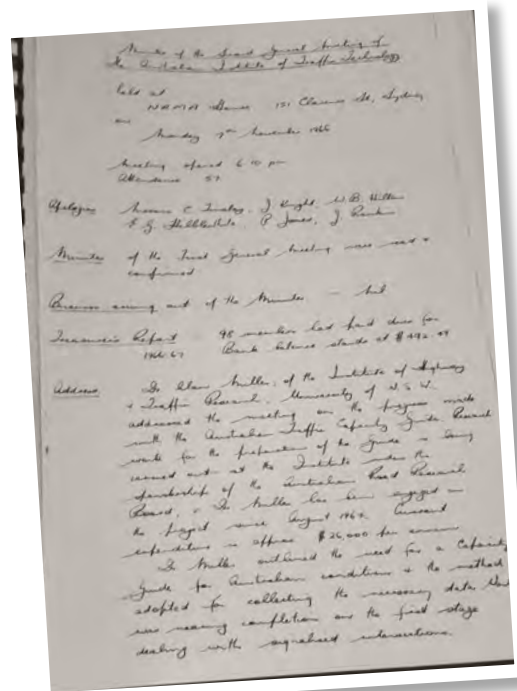 Minutes of the Second General Meeting of
the Australian Institute of Traffic Technology
held at
NRMA House 151 Clarence St, Sydney
on
Monday 7th November 1966
Meeting opened 6 10 pm
Attendance 57
Apologies Messrs C Tinsley, J Knight, W.B.
P Jones, J
Minutes of the General Meeting were read &
confirmed
Business arising out of the Minutes - Nil
Treasurer's Report - 98 members had paid dues for
1966.67 Bank balance stands at
Address Dr Alan Miller, of the Institute of Highway
& Traffic Research, University of N.S.W.
addressed the meeting on the progress made
with the Australian Traffic Capacity Guide. Research
work for the preparation of the Guide is being
carried out at the Institute under the
sponsorship of the Australian Road Research
Board, & Dr Miller has been engaged on
the project since August Current
expenditure is approx $26,000 per annum
Dr Miller outlined the need for a Capacity
Guide for Australian conditions & the method
adopted for collecting the necessary data.
was nearing completion on the first stage
dealing with signalised intersections.